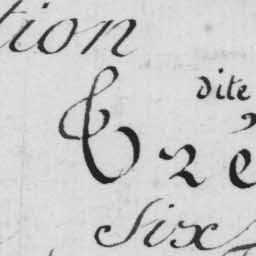 tion
dite
Six